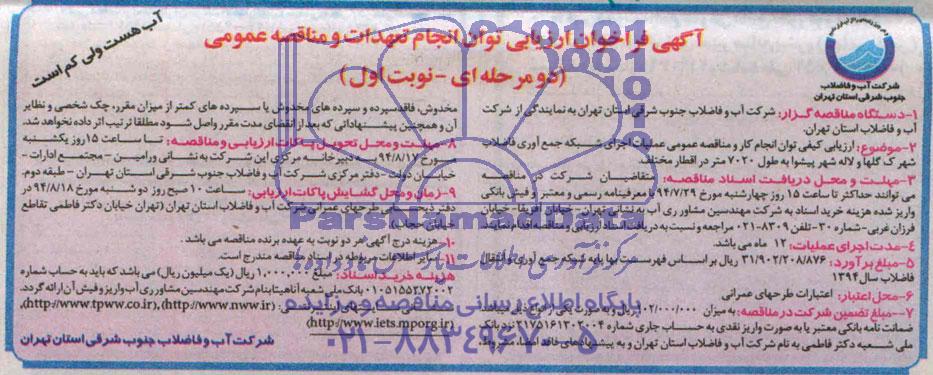 آگهی فراخوان ارزیابی توان انجام تعهدات و مناقصه عمومی
(دو مرحله ای - نوبت اول)
آب هست ولی کم است
شرکت آب و فاضلاب
جنوب شرقی استان تهران
۱-دستگاه مناقصه گزار: شرکت آب و فاضلاب جنوب شرقی استان تهران به نمایندگی از شرکت
آب و فاضلاب استان تهران.
۲-موضوع: ارزیابی کیفی توان انجام کار و مناقصه عمومی عملیات اجرای شبکه جمع آوری فاضلاب
شهرک گلها و لاله شهر پیشوا به طول ۷۰۲۰ متر در اقطار مختلف.
۳-مهلت و محل دریافت اسناد مناقصه: متقاضیان شرکت در مناقصه
می توانند حداکثر تا ساعت ۱۵ روز چهارشنبه مورخ ۹۴/۷/۲۹ با معرفینامه رسمی و معتبر و فیش بانکی
واریز شده هزینه خرید اسناد به شرکت مهندسین مشاور ری آب به نشانی تهران- خیابان آفریقا- خیابان
فرزان غربی-شماره ۳۰-تلفن ۸۳۰۹-۰۲۱ مراجعه و نسبت به دریافت اسناد ارزیابی و مناقصه اقدام نمایند.
۴-مدت اجرای عملیات: ۱۲ ماه می باشد.
۵-مبلغ برآورد: ۳۱/۹۰۲/۲۰۸/۸۷۶ ریال بر اساس فهرست بها پایه شبکه جمع آوری و انتقال
فاضلاب سال ۱۳۹۴
۶-محل اعتبار: اعتبارات طرحهای عمرانی
۷-مبلغ تضمین شرکت در مناقصه: به میزان ریال و به صورت یکی از انواع
ضمانت نامه بانکی معتبر یا به صورت واریز نقدی به حساب جاری شماره ۲۱۷۵۱۶۱۳۰۹۰۰۴ نزد بانک
ملی شعبه دکتر فاطمی به نام شرکت آب و فاضلاب استان تهران و به پیشنهادهای فاقد امضاء، مشروط،
مخدوش، فاقد سپرده و سپرده های مخدوش یا سپرده های کمتر از میزان مقرر، چک شخصی و نظایر
آن و همچنین پیشنهاداتی که بعد از انقضای مدت مقرر واصل شود مطلقا ترتیب اثر داده نخواهد شد.
۸-مهلت و محل تحویل پاکات ارزیابی و مناقصه: تا ساعت ۱۵ روز یکشنبه
مورخ ۹۴/۸/۱۷ به دبیرخانه مرکزی این شرکت به نشانی ورامین - مجتمع ادارات -
خیابان دولت - دفتر مرکزی شرکت آب و فاضلاب جنوب شرقی استان تهران - طبقه دوم.
۹-زمان و محل گشایش پاکات ارزیابی: ساعت ۱۰ صبح روز دو شنبه مورخ ۹۴/۸/۱۸ در
دفتر طرحهای عمرانی شرکت آب و فاضلاب استان تهران (تهران خیابان دکتر فاطمی تقاطع
خیابان حجاب)
۱۰-هزینه درج آگهی هر دو نوبت به عهده برنده مناقصه می باشد.
۱۱-سایر اطلاعات مربوطه در اسناد مناقصه مندرج است.
هزینه خرید اسناد: مبلغ ۱،۰۰۰،۰۰۰ ریال (یک میلیون ریال) می باشد که باید به حساب شماره
بانک ملی شعبه آناهیتا بنام شرکت مهندسین مشاور ری آب واریز و فیش آن ارائه گردد.
(http://www.nww.ir) ،(http://www.tpww.co.ir)،
(http://www.iets.mporg.ir)
شرکت آب و فاضلاب جنوب شرقی استان تهران
ParsNamadData
مرکز فرآوری اطلاعات
پایگاه اطلاع رسانی مناقصه و مزایده
۰۲۱-۸۸۳۴۹۶۷۰-۵